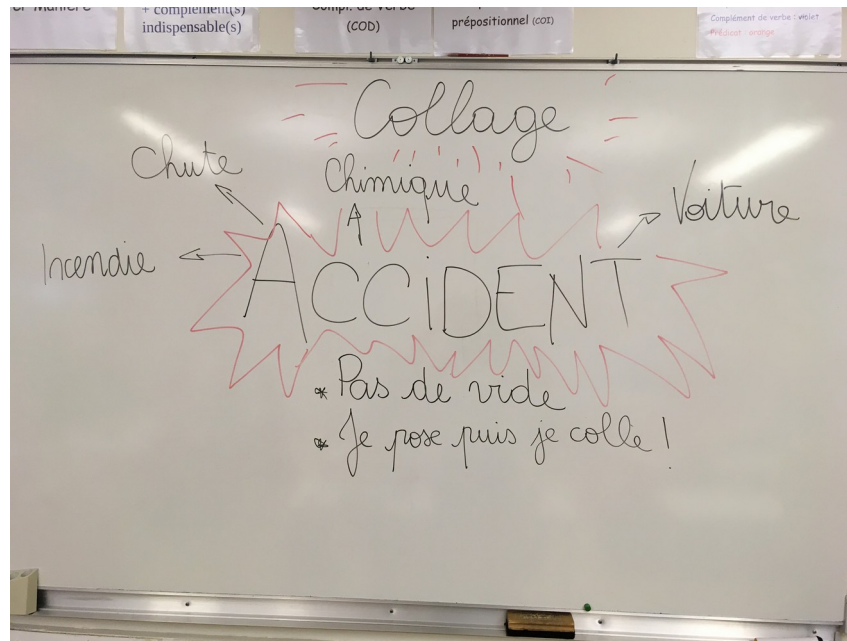 + complément(s)
indispensable(s)
(COD)
prépositionnel (COI)
Complément de verbe : violet
Prédicat : orange
Collage
Chute
Chimique
Voiture
Incendie
ACCIDENT
* Pas de vide
* Je pose puis je colle !